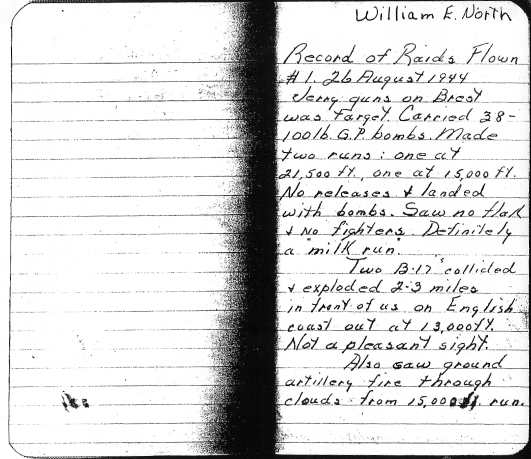 William E. North
Record of Raids Flown
#1. 26 August 1944
Jerry guns on Brest
was target. Carried 38-
100lb. G.P. bombs. Made
two runs: one at
21,500 ft., one at 15,000 ft.
No releases & landed
with bombs. Saw no flak
& no fighters. Definitely
a "milk run".
Two B-17's collided
& exploded 2-3 miles
in front of us on English
coast out at 13,000 ft.
Not a pleasant sight.
Also saw ground
artillery fire through
clouds from 15,000 ft. run.